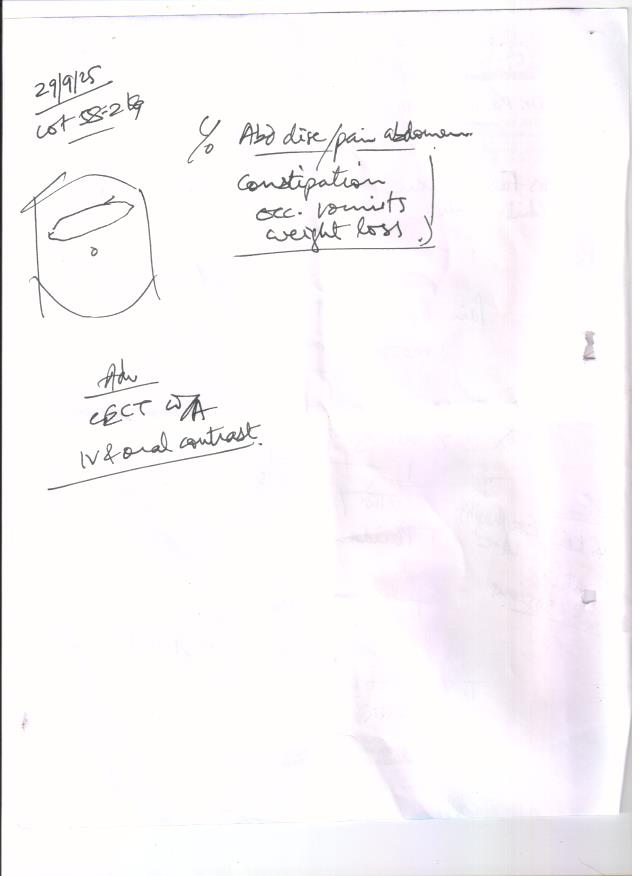 29/9/25
Wt 58.2 kg
C/o Abd disc/pain abdomen
Constipation
occ. vomits
weight loss
Adv
CECT W/A
IV & oral contrast.